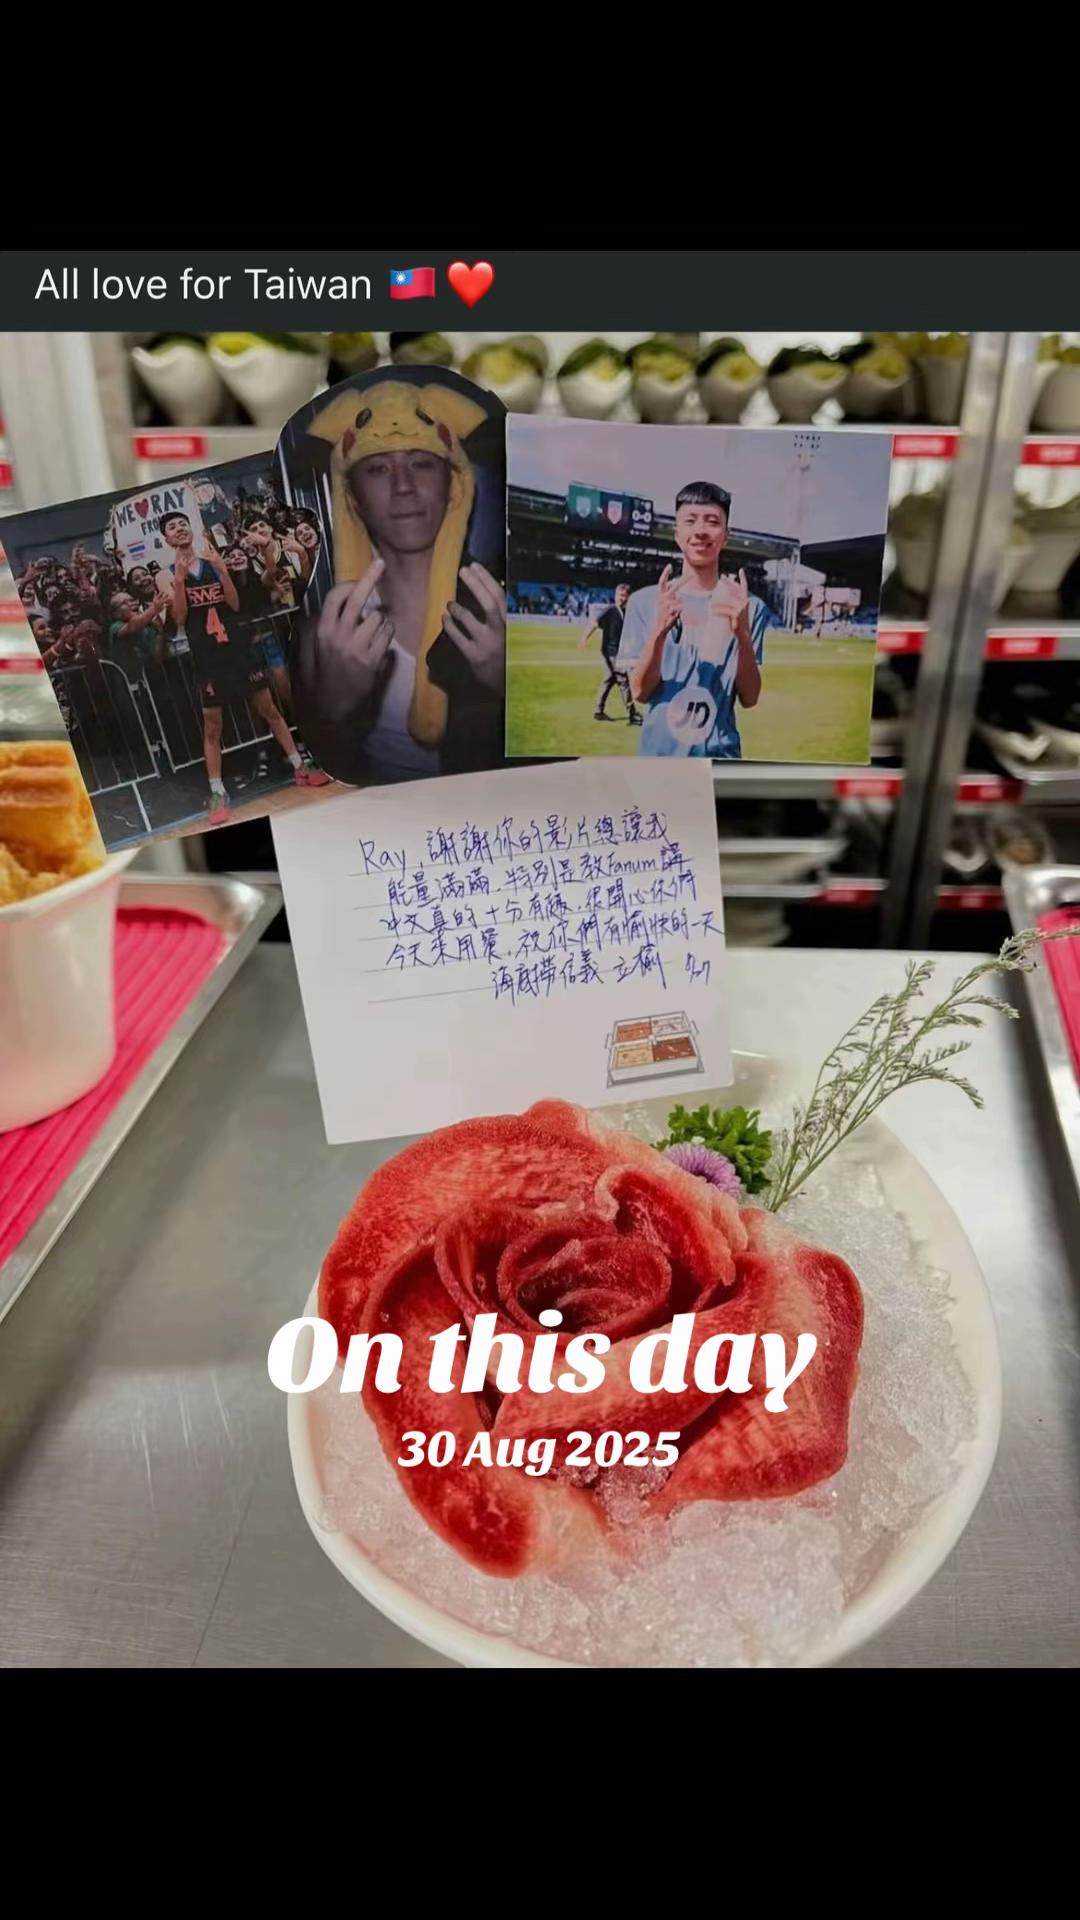 All love for Taiwan 🇹🇼❤️
WE ❤ RAY
FROM
&
RWE
4
0-0
JD
Ray, 謝謝你的影片總讓我
能量滿滿. 特別是教Fanum講
中文真的十分有緣. 很開心你們
今天來用餐, 祝你們有愉快的一天
海底撈信義 立榆 8/27
On this day
30 Aug 2025